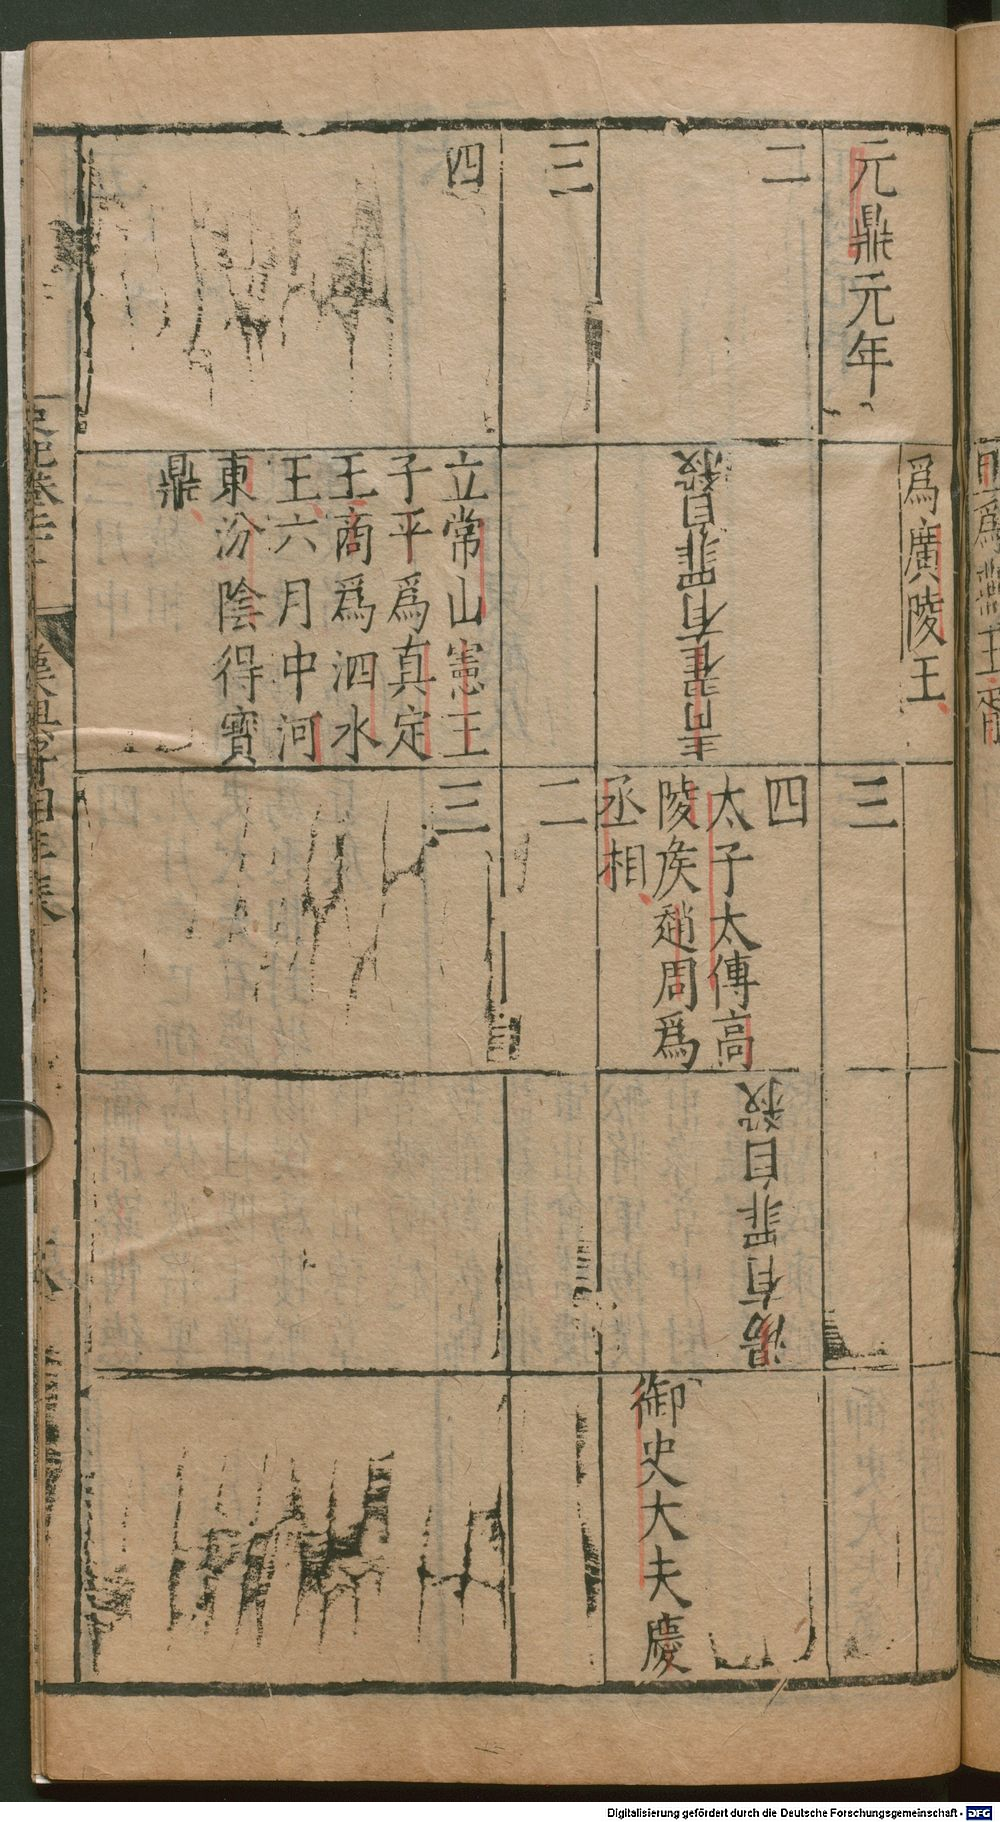 爲廣陵王
元鼎元年
三
二
青翟有罪自殺
四
太子太傅高
陵侯趙周爲
丞相
湯有罪自殺
御史大夫慶
三
二
四
立常山憲王
子平爲真定
王商爲泗水
王六月中河
東汾陰得寶
鼎
三
Digitalisierung gefördert durch die Deutsche Forschungsgemeinschaft - DFG